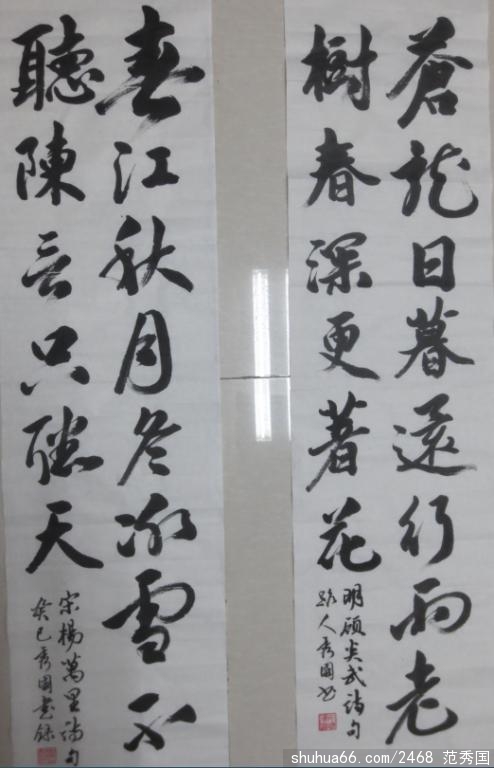 蒼龙日暮還行雨老
樹春深更著花
明顧炎武詩句
路人秀國書
春江秋月冬冰雪不
聽陳言只聽天
宋楊萬里詩句
癸巳秀國書錄
shuhua66.com/2468 范秀国